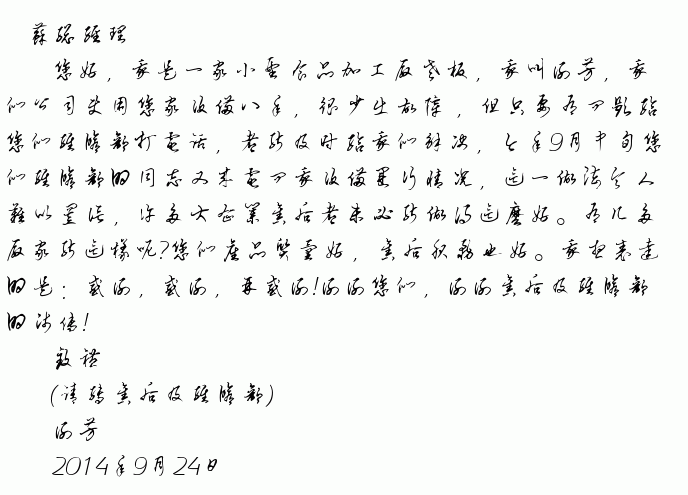 苏总经理
您好，我是一家小型食品加工厂老板，我叫谢芳，我
们公司使用您家设备八年，很少出故障，但只要有问题给
您们经营部打电话，都能及时给我们解决，今年9月中旬您
们经营部的同志又来电问我设备运行情况，这一做法令人
难以置信，许多大企业售后都未必能做得这麽好。有几多
厂家能这样呢?您们产品质量好，售后服务也好。我想表达
的是：感谢，感谢，再感谢!谢谢您们，谢谢售后及经营部
的师傅!
致礼
(请转售后及经营部)
谢芳
2014年9月24日